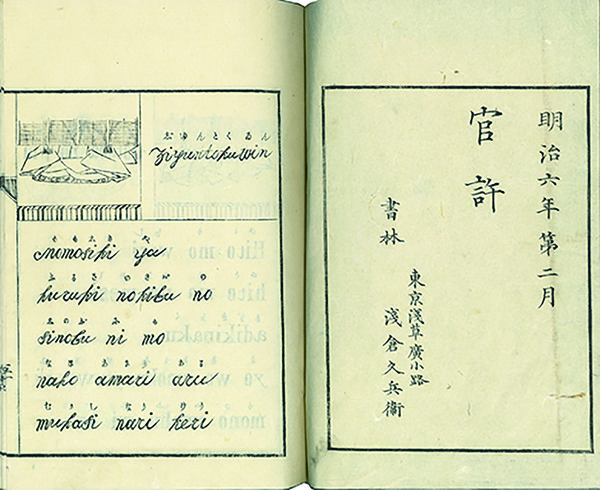 じゆんとくゐん
Ziyuntokuwin
momosiki ya
huruki nokiba no
sinobu ni mo
naho amari aru
むかし なり けり
mukasi nari keri
明治六年第二月
官許
書林
東京淺草廣小路
淺倉久兵衛